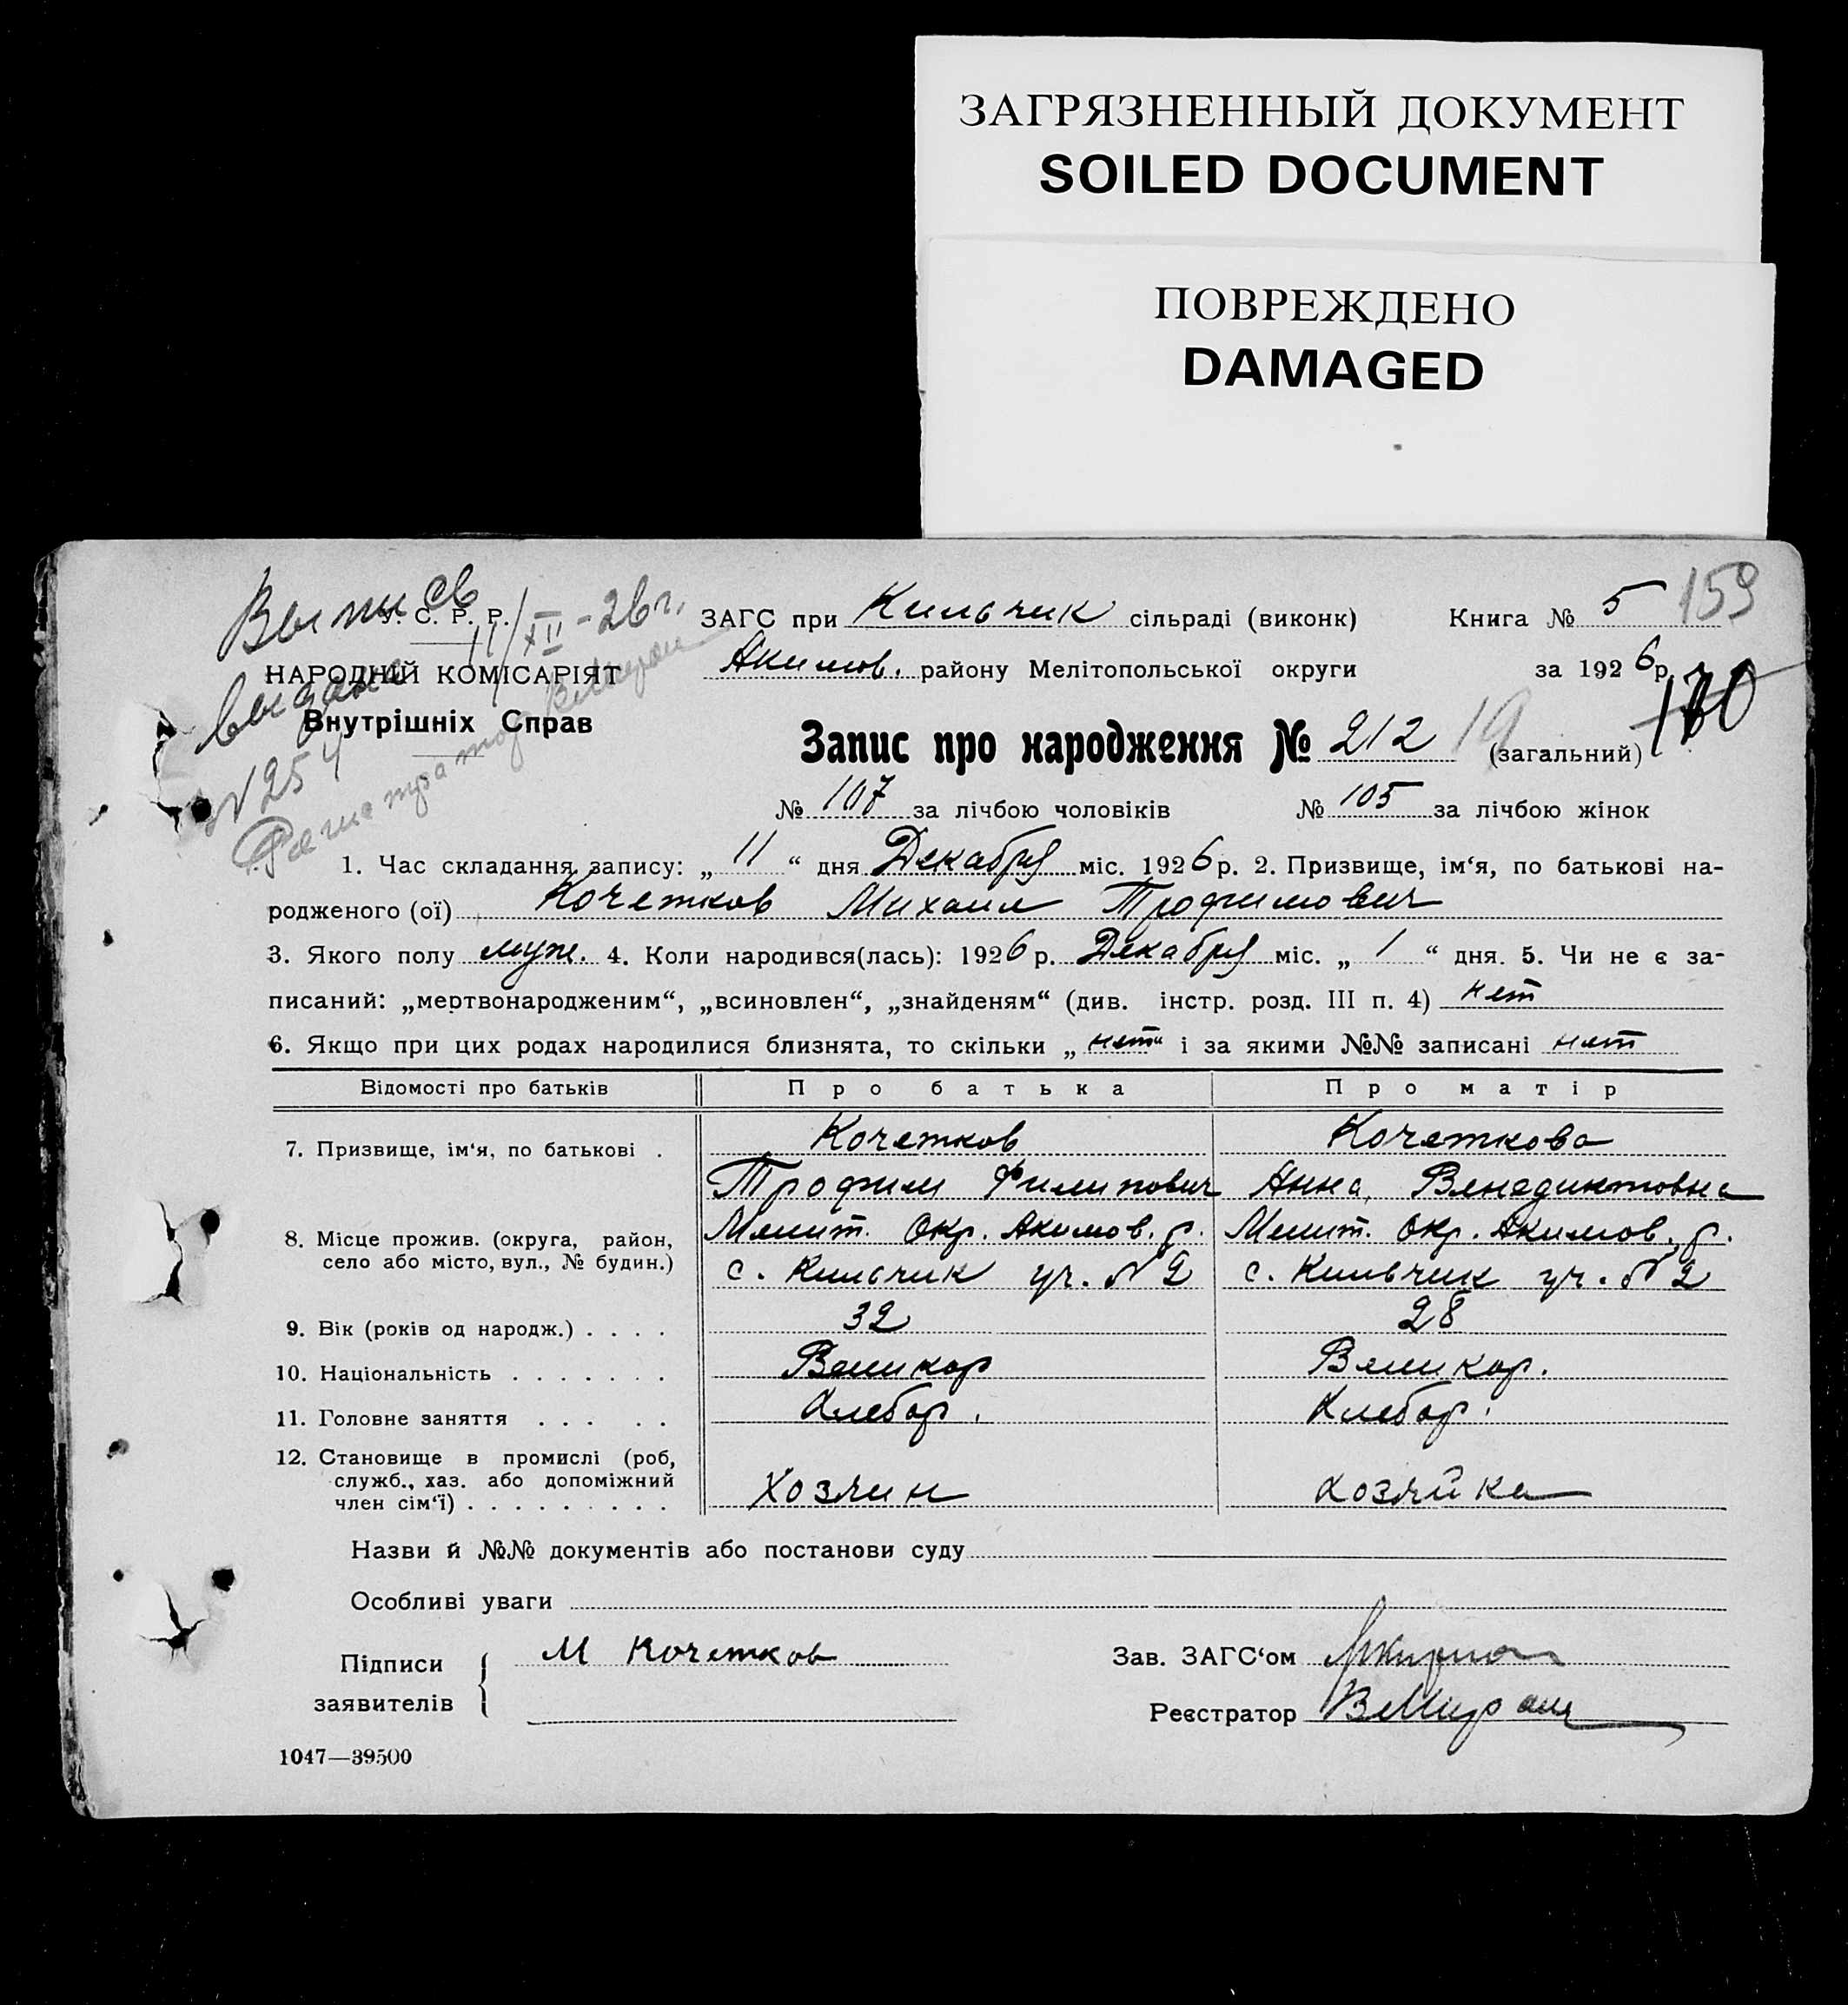 ЗАГРЯЗНЕННЫЙ ДОКУМЕНТ
SOILED DOCUMENT
ПОВРЕЖДЕНО
DAMAGED
Выпись
выдана
11/XII-26 г.
N 254
Регистратор
У. С. Р. Р.
НАРОДНИЙ КОМІСАРІЯТ
Внутрішніх Справ
ЗАГС при Кильчик сільраді (виконк) Книга № 5 159
Акимов. району Мелітопольської округи за 1926 р.
Запис про народження № 212 19 (загальний) 170
№ 107 за лічбою чоловіків № 105 за лічбою жінок
1. Час складання запису: „ 11 “ дня Декабря міс. 1926 р. 2. Призвище, ім‘я, по батькові на-
родженого (ої) Кочетков Михаил Трофимович
3. Якого полу муж. 4. Коли народився(лась): 1926 р. Декабря міс. „ 1 “ дня. 5. Чи не є за-
писаний: „мертвонародженим“, „всиновлен“, „знайденям“ (див. інстр. розд. III п. 4) нет
6. Якщо при цих родах народилися близнята, то скільки „ нет “ і за якими №№ записані нет
Відомості про батьків Про батька Про матір
7. Призвище, ім‘я, по батькові . Кочетков Кочеткова
Трофим Филипович Анна Венедиктовна
8. Місце прожив. (округа, район, Мелит. Окр. Акимов. р. Мелит. Окр. Акимов. р.
село або місто, вул., № будин.) с. Кильчик уч. N 2 с. Кильчик уч. N 2
9. Вік (років од народж.) . . . . 32 28
10. Національність . . . . . . . Великор Великор.
11. Головне заняття . . . . . Хлебор. Хлебор.
12. Становище в промислі (роб,
служб., хаз. або допоміжний
член сім‘ї) . . . . . . . . . Хозяин Хозяйка
Назви й №№ документів або постанови суду
Особливі уваги
Підписи заявителів { М Кочетков
Зав. ЗАГС‘ом
Реєстратор
1047—39500